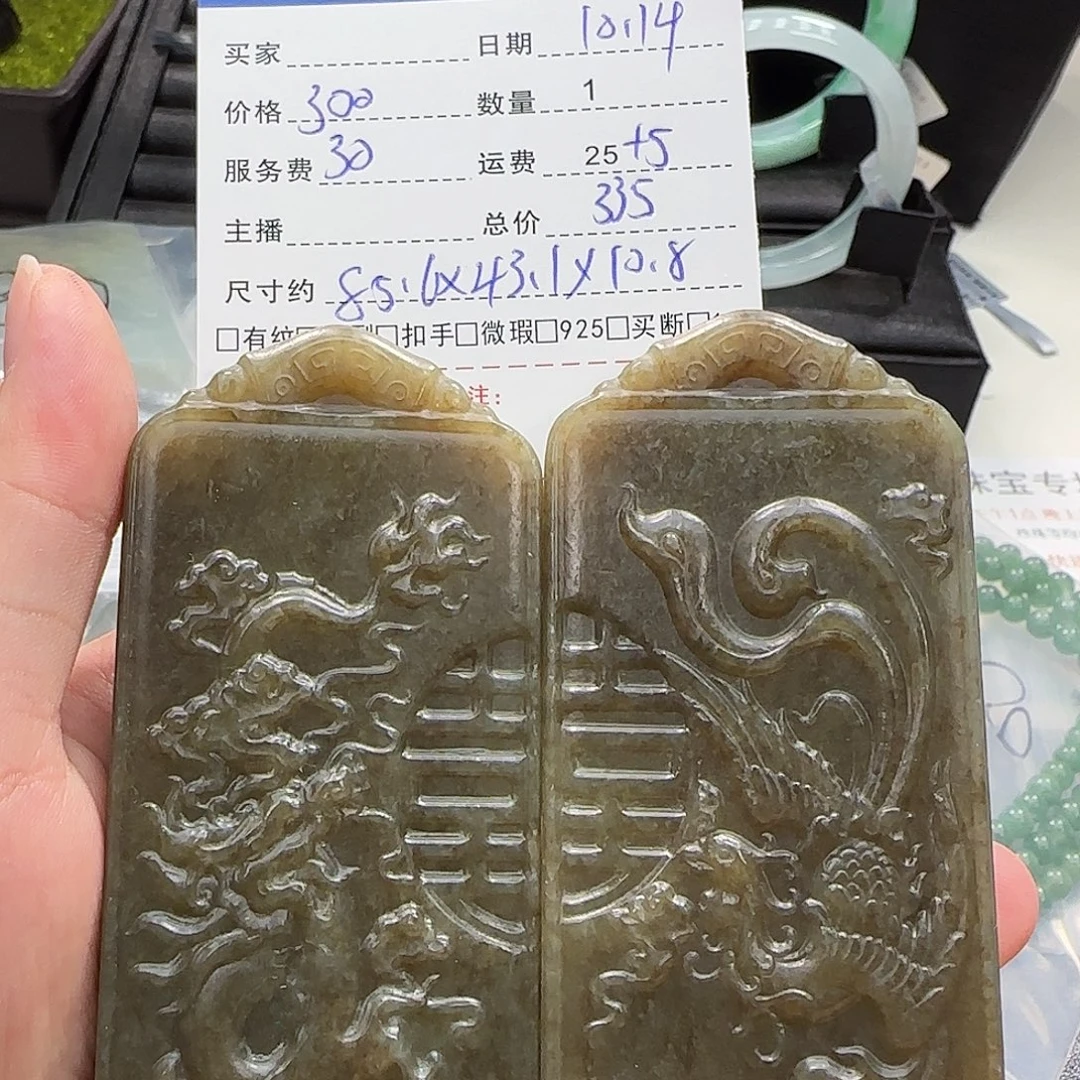 买家 日期 10.14
价格 300 数量 1
服务费 30 运费 25+5
主播 总价 335
尺寸约 85.6x43.1x10.8
□有纹□ □扣手□微瑕□925□买断□
注：
珠宝专